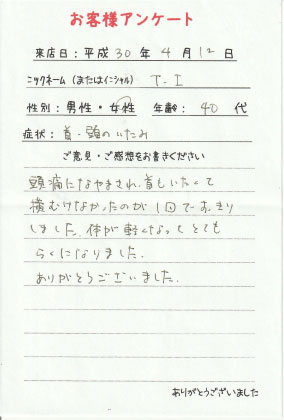 お客様アンケート
来店日：平成 30 年 4 月 12 日
ニックネーム（またはイニシャル） T.I
性別：男性・女性 年齢：40 代
症状：首・頭のいたみ
ご意見・ご感想をお書きください
頭痛になやまされ、首もいたくて
横むけなかったのが1回ですっきり
しました。体が軽くなってとても
らくになりました。
ありがとうございました。
ありがとうございました